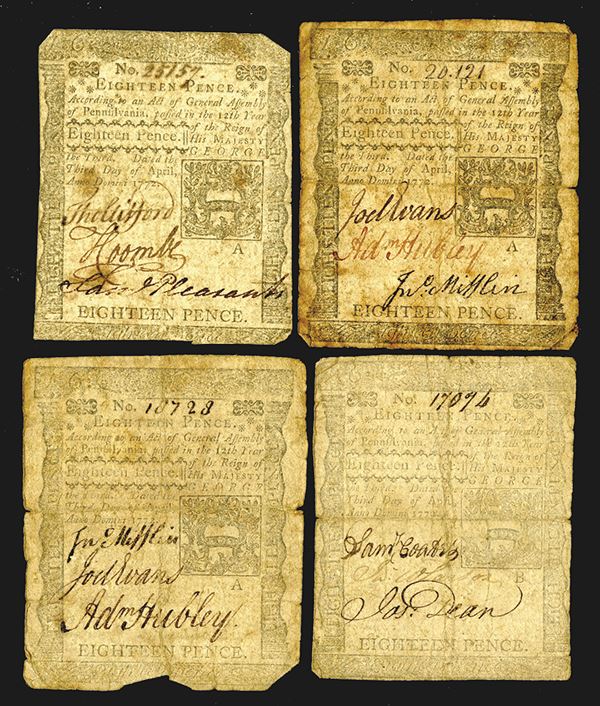 No. 25157.
EIGHTEEN PENCE.
According to an Act of General Assembly
of Pennsylvania, passed in the 12th Year
Eighteen Pence. of the Reign of
His MAJESTY
GEORGE
the Third. Dated the
Third Day of April,
Anno Domini 1772.
Tho Clifford
A
Pleasants
EIGHTEEN PENCE.
No. 20.121
EIGHTEEN PENCE.
According to an Act of General Assembly
of Pennsylvania, passed in the 12th Year
Eighteen Pence. of the Reign of
His MAJESTY
GEORGE
the Third. Dated the
Third Day of April,
Anno Domini 1772.
Joel Evans
A
Adm Hubley
Jno. Mifflin
EIGHTEEN PENCE.
No. 18728
EIGHTEEN PENCE.
According to an Act of General Assembly
of Pennsylvania, passed in the 12th Year
Eighteen Pence. of the Reign of
His MAJESTY
GEORGE
the Third. Dated the
Third Day of April,
Anno Domini 1772.
Jno. Mifflin
Joel Evans
A
Adm Hubley.
EIGHTEEN PENCE.
No. 17094
EIGHTEEN PENCE.
According to an Act of General Assembly
of Pennsylvania, passed in the 12th Year
Eighteen Pence. of the Reign of
His MAJESTY
GEORGE
the Third. Dated the
Third Day of April,
Anno Domini 1772.
Saml Coates
B
Jos. Dean
EIGHTEEN PENCE.